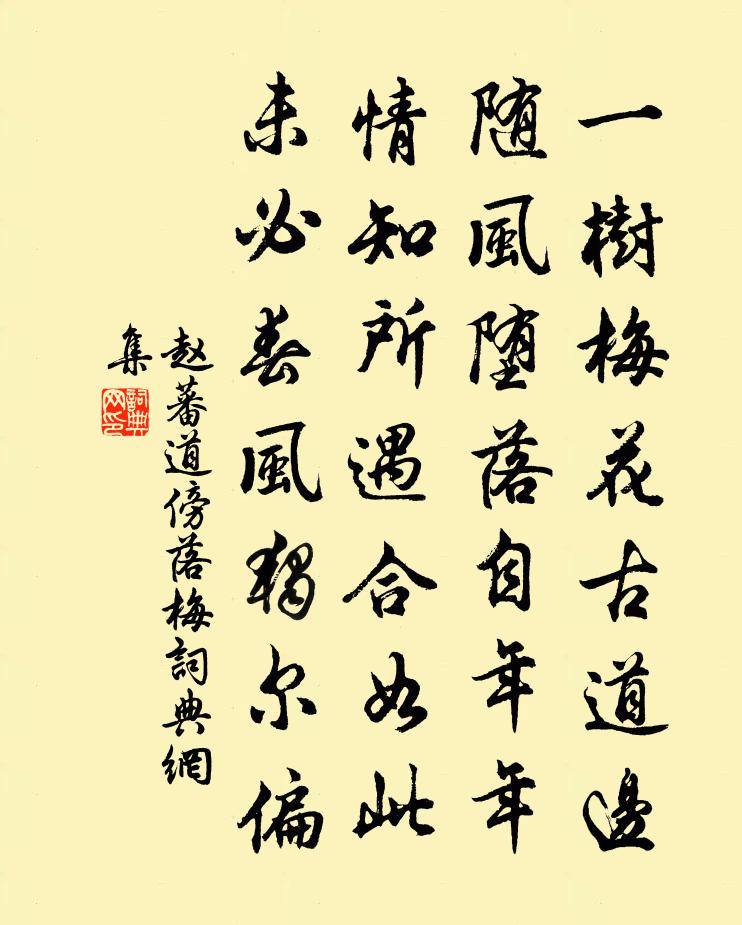 一樹梅花古道邊
随風堕落自年年
情知所遇合如此
未必春風獨尔偏
赵蕃道傍落梅詞典網
集
詞典
网印